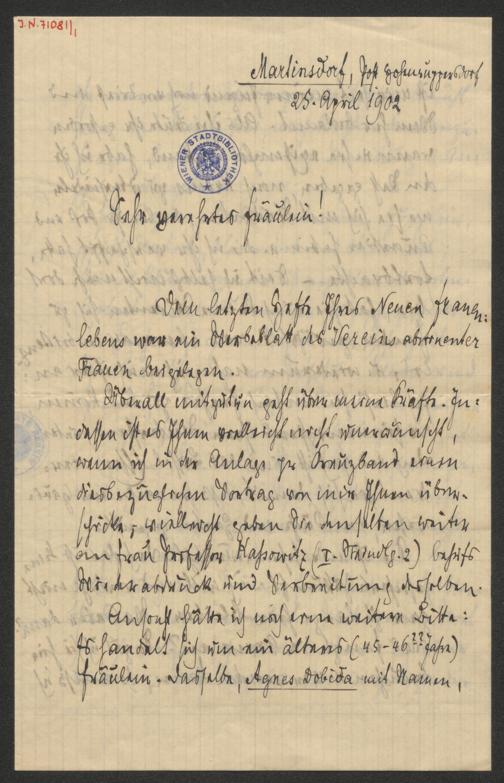 J.N. 71081/1
Martinsdorf, Post Hohenruppersdorf
25. April 1902
WIENER STADTBIBLIOTHEK
Sehr verehrtes Fräulein!
Dem letzten Hefte Ihres Neuen Frauen-
lebens war ein Werbeblatt des Vereins abstinenter
Frauen beigelegen.
Überall mitzutun geht über meine Kräfte. In-
dessen ist es Ihnen vielleicht nicht unerwünscht,
wenn ich in der Anlage pr Kreuzband einen
diesbezüglichen Vortrag von mir Ihnen über-
schicke; vielleicht geben Sie denselben weiter
an Frau Professor Kassowitz (I. Tuchlbg. 2) behufs
Wiederabdruck und Verbreitung desselben.
Ansonst hätte ich noch eine weitere Bitte:
Es handelt sich um ein älteres (45-46?? Jahre)
Fräulein. Dasselbe, Agnes Dobida mit Namen,